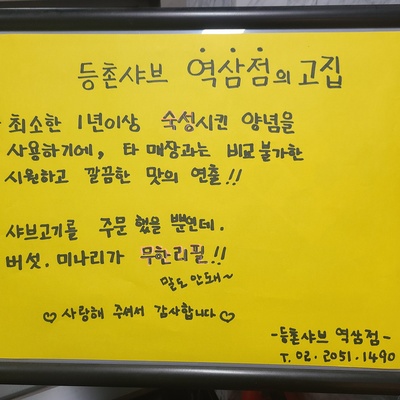 등촌샤브 역삼점의 고집
최소한 1년이상 숙성시킨 양념을
사용하기에, 타 매장과는 비교불가한
시원하고 깔끔한 맛의 연출!!
샤브고기를 주문 했을 뿐인데.
버섯. 미나리가 무한리필!!
말도 안돼~
♡ 사랑해 주셔서 감사합니다 ♡
-등촌샤브 역삼점-
T. 02. 2051. 1490